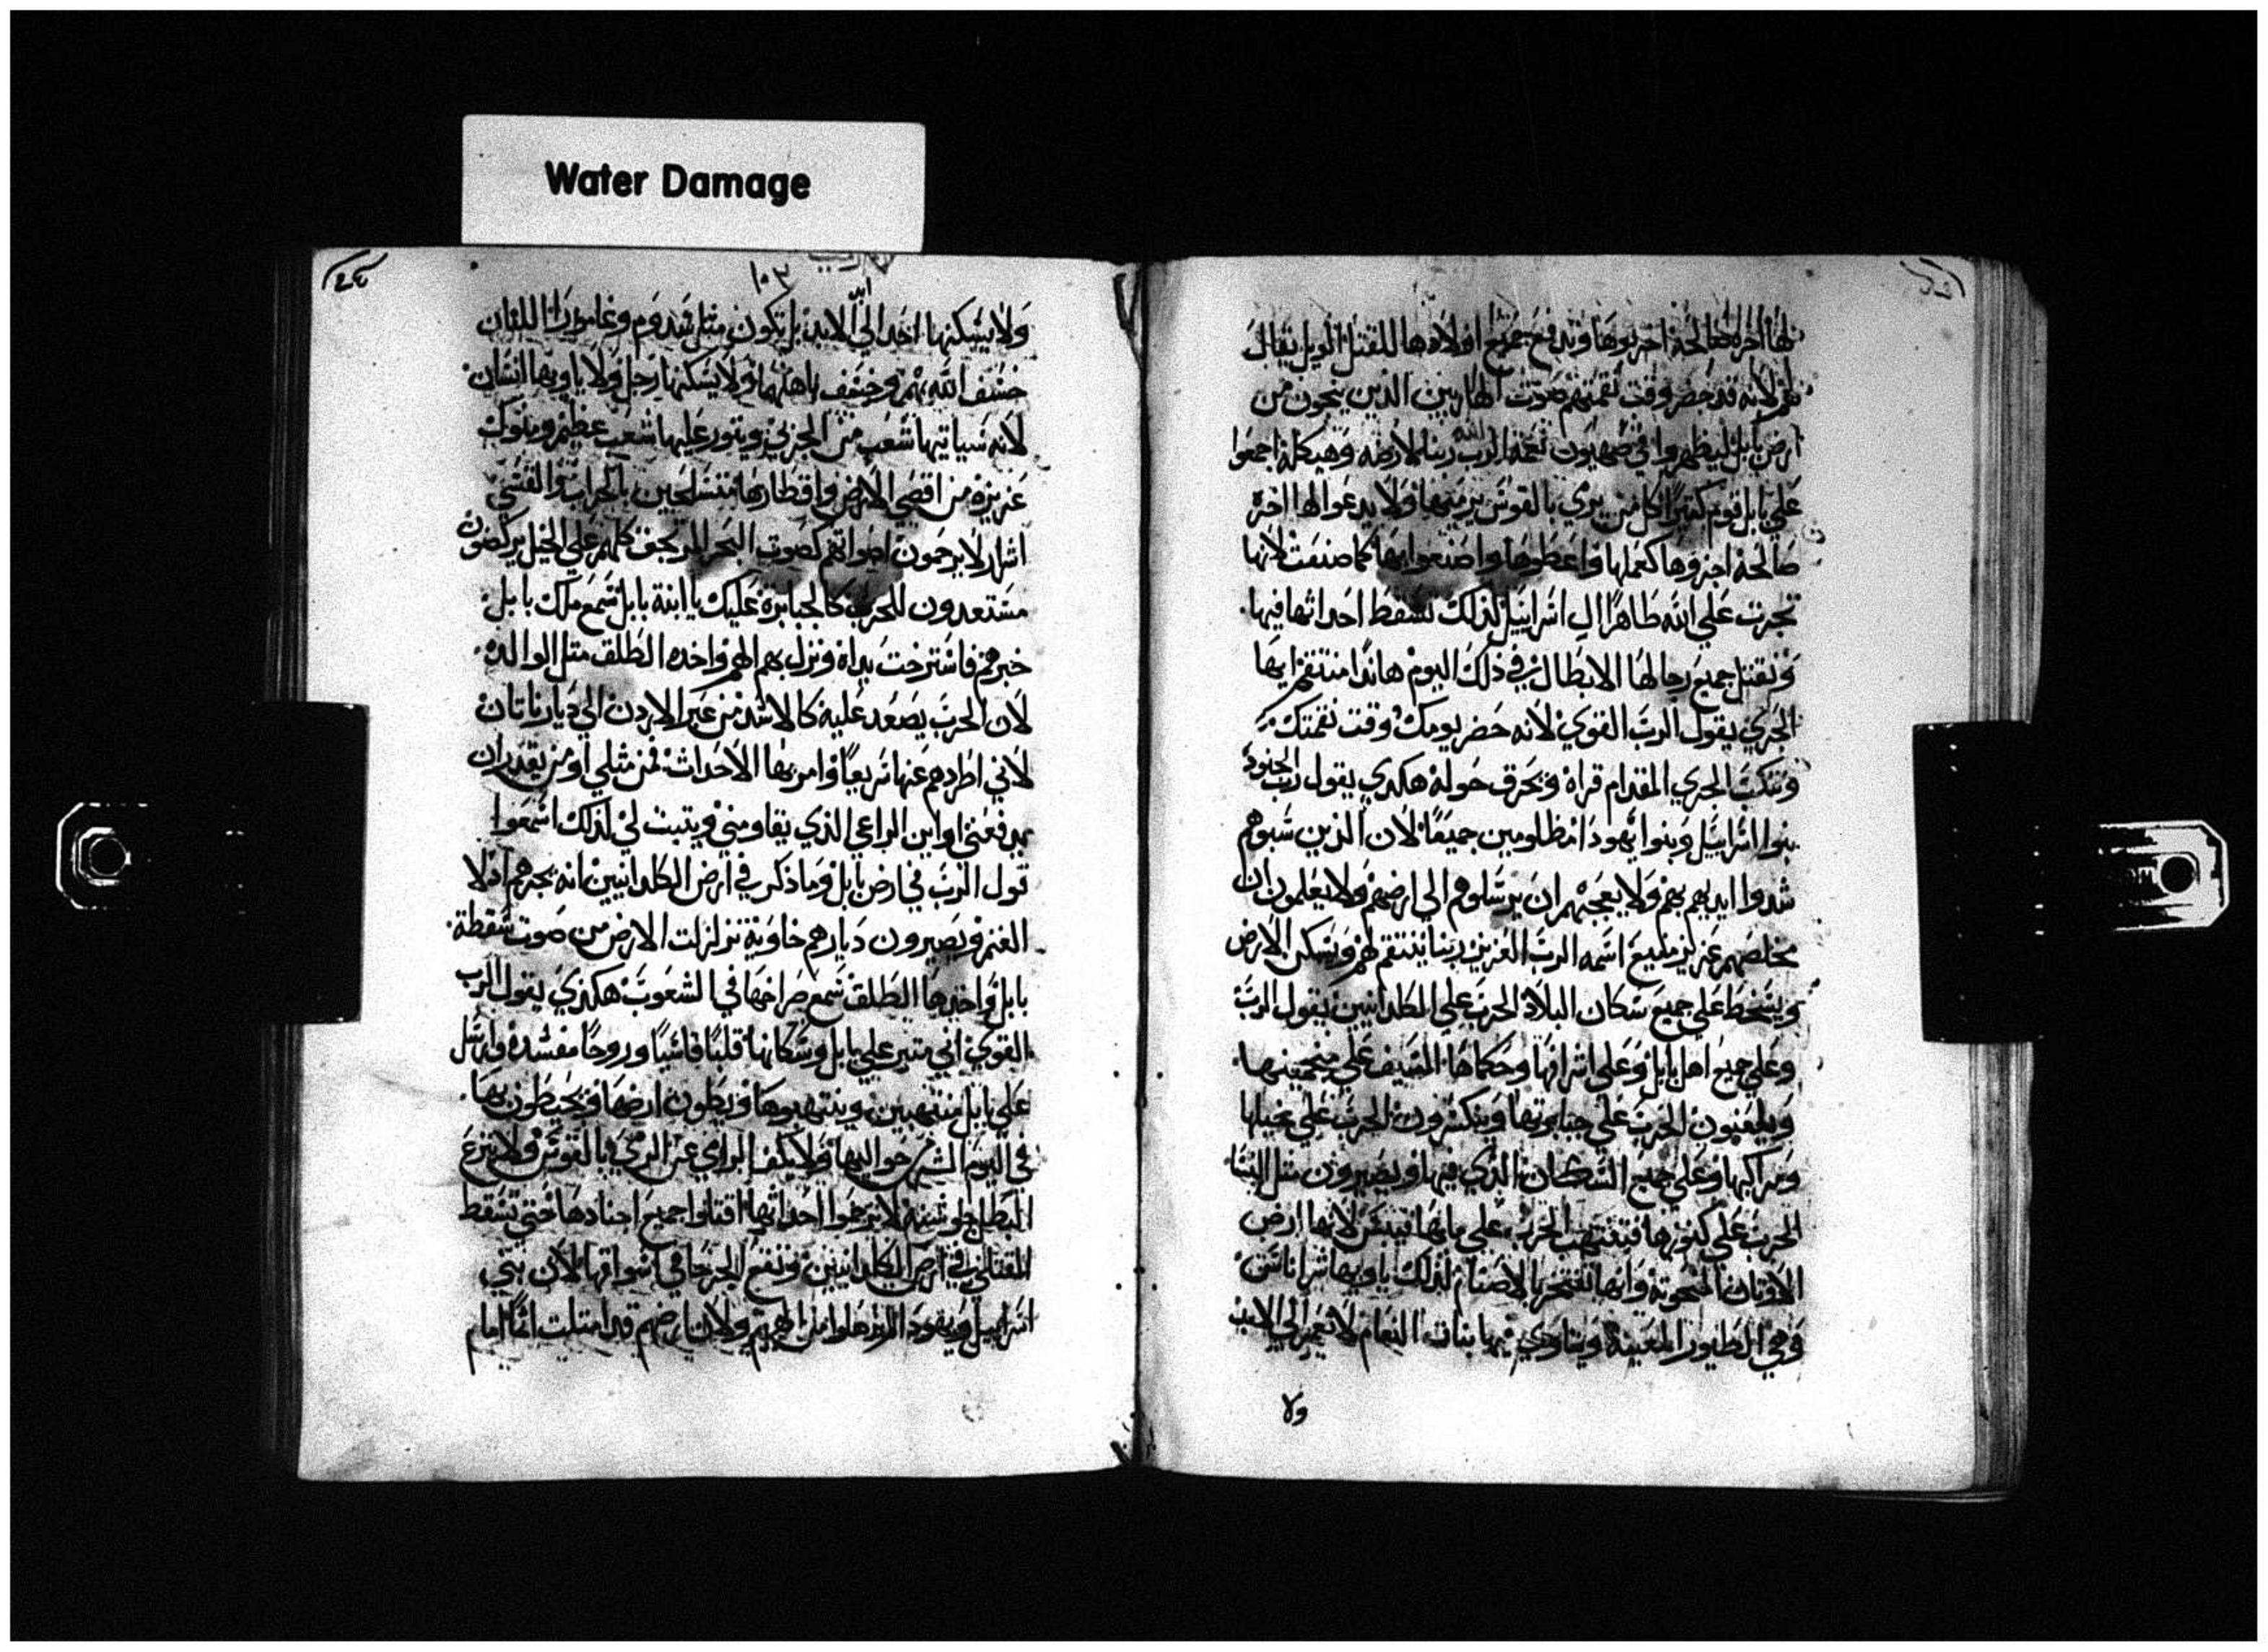 Water Damage
لها اخرة صالحة اخربوها وتدفع جميع اولادها للقتل الويل يقال
لهم لانه قد حضر وقت نقمتهم صوت الهاربين الذين ينجون من
ارض بابل ليظهروا في صهيون نقمة الرب الله ربنا لارضه وهيكله اجمعوا
علي بابل قوم كثيرا كل من يري بالقوس يرميها ولا يدعوا لها اخرة
صالحة اجزوها كعملها واعطوها واصنعوا بها كما صنعت لانها
تجرت علي الله طاهرا ال اسراييل لذلك تسقط احداثها فيها
وتقتل جميع رجالها الابطال في ذلك اليوم هاندا منتقم ايها
الجري يقول الرب القوي لانه حضر يومك وقت نقمتك
وتنكب الجري المقدام قراه وتحرق حوله هكدي يقول رب الجنود
بنوا اسراييل وبنوا يهودا مظلومين جميعا لان الذين سبوهم
شدوا ايديهم بهم ولا يعجبهم ان يرسلوهم الي ارضهم ولا يعلمون ان
مخلصهم عزيز منيع اسمه الرب العزيز ربنا ينتقم لهم وتسكن الارض
ويسخط علي جميع سكان البلاد الحرب علي الكلدانيين يقول الرب
وعلي جميع اهل بابل وعلي اشرافها وحكماها السيف علي منجمينها
الحرب علي جبابرتها وينكسرون الحرب علي خيلها
ومراكبها وعلي جميع السكان الذي فيها ويصيرون مثل النسا
الحرب علي كنوزها فتنتهب الحرب علي ماها فييبس لانها ارض
الاوثان المنحوتة وانها تفتخر بالاصنام لذلك ياويها
وهي الطيور وياوي فيها بنات النعام لا تعمر الي الابد
ولا
١٠٣
ولا يسكنها احد الي الابد بل تكون مثل سدوم وغامورا اللتان
خسف الله بهم وخسف باهلهما ولا يسكنها رجل ولا ياويها انسان
لانه سياتيها شعب من الجربي ويثور عليها شعب عظيم وملوك
عزيزة من اقصي الارض واقطارها متسلحين بالحراب والقسي
اشرار لا يرحمون اصواتهم كصوت البحر المرتجف كلهم علي الخيل يركضون
مستعدون للحرب كالجبابرة عليك يا ابنة بابل سمع ملك بابل
خبرهم فاسترخت يداه ونزل بهم الهم واخده الطلق مثل الوالده
لان الحرب يصعد عليه كالاسد من عبر الاردن الي ديار ناتان
لاني اطردهم عنها سريعا وامر بها الاحداث فمن مثلي او من يقدر ان
يدفعني او اين الراعي الذي يقاومني ويثبت لي لذلك اسمعوا
قول الرب في ارض بابل وما ذكر في ارض الكلدانيين انه يجرهم ادلا
الغنم ويصيرون ديارهم خاوية تزلزلت الارض من صوت سقطة
بابل واخدها الطلق سمع صراخها في الشعوب هكذي يقول الرب
القوي اني مثير علي بابل وسكانها قلبا قاسيا وروحا مفسده وارسل
علي بابل منتهبين وينتهبوها ويطون ارضها ويحيطون بها
في اليوم الشر حواليها ولا يكف الرامي عن الرمي بالقوس ولا ينزع
البطل جوشنه لا ترحموا احداثها اقتلوا جميع اجنادها حتي تسقط
القتلي في ارض الكلدانيين وتقع الجرحا في اسواقها لان بني
اسراييل ويهودا لم الههم ولان ارضهم قد امتلت اثما امام